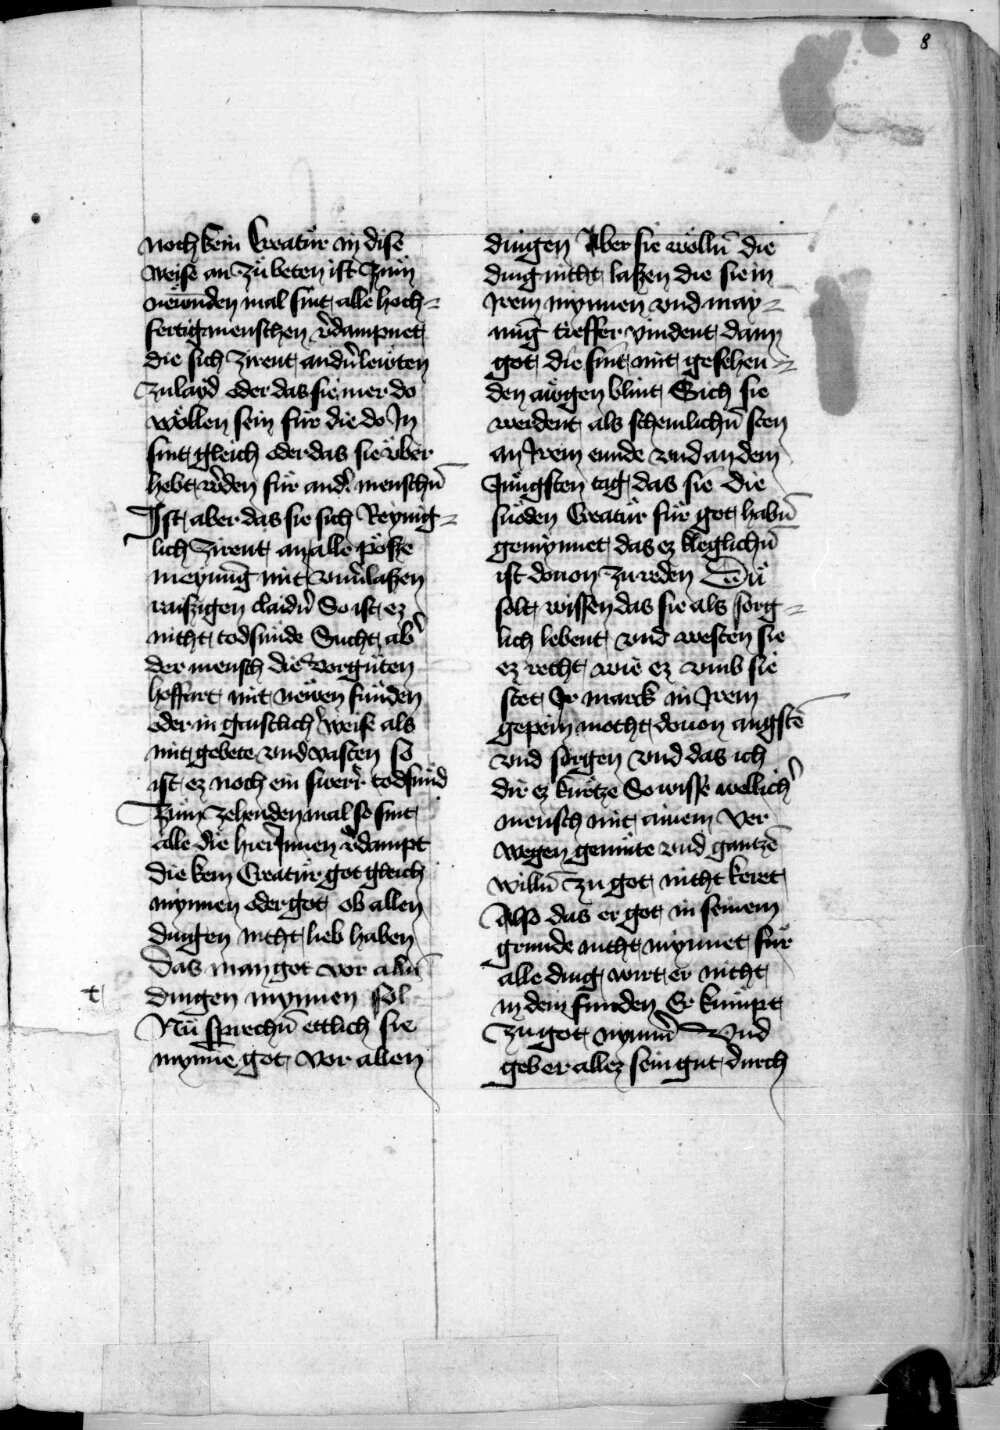 8
noch kein Creatur in dise
weise an zu beten ist Zum
neunden mal sint alle hoch-
fertig menschen v̾dampnet
die sich zirent and̾n lewten
zu layd oder das sie mer do
wöllen sein für die do In
sint gleich oder das sie über
hebt w̾den für and̾ menschn̄
Ist aber das sie sich Reynig-
lich zirent an alle pösze
meynung mit
 claid̾n So ist ez
nicht todsünde Sucht ab̾
der mensch die
hoffart mit newen fünden
oder in geistlich̾ weise als
mit gebete vnd vasten so
ist ez noch ein swer̾r todsünd
Zum zehenden mal so sint
alle die hier Innen v̾dampt
die kein Creatur got gleich
mynnen oder got ob allen
dingen nicht lieb haben
Das man got vor alln̄
dingen mynnen sol
Nu sprechn̄ ettlich sie
mynne got vor allen
dingen Aber sie wölln̄ die
ding nicht laszen die sie in
Irem mynnen vnd may-
nūg tieffer vindent dann
got die sint mit gesehen-
den awgen blint Sich sie
werdent als schemlichn̄ sten
an Irem ennde vnd an dem
Jungsten tag das sie die
snöden Creatur für got habn̄
gemynnet das ez kleglichn̄
ist douon zu reden Du
solt wissen das sie als sorg-
lich lebent vnd westen sie
ez recht wie ez vmb sie
stet Ir marck in Irem
gepein mocht douon angstē
vnd sorgen vnd das ich
dir ez kürtze So wisse wellich̾
mensch mit einem ver
wegen gemüte vnd gantzē
willn̄ zu got nicht keret
Also das er got in seinem
grunde nicht mynnet für
alle ding wirt er nicht
in dem funden Er kumpt
zu got nymm̄ Vnd
geb er allez sein gut durch